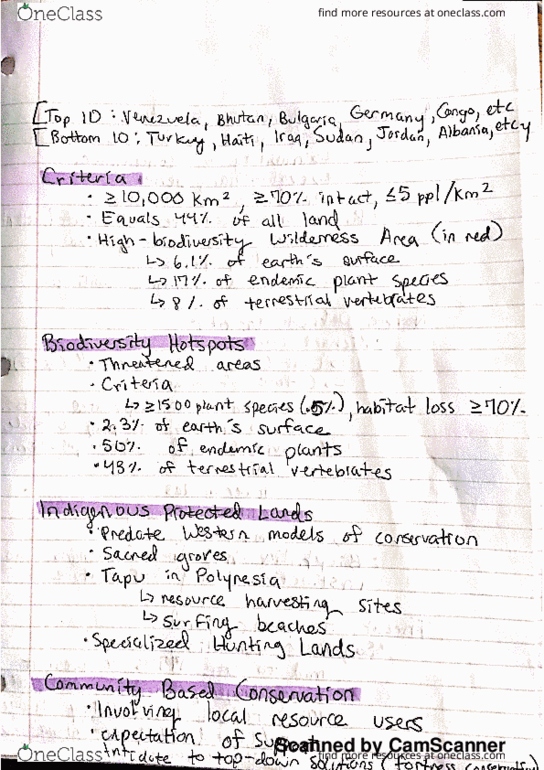 OneClass
find more resources at oneclass.com
[Top 10 : Venezuela, Bhutan, Bulgaria, Germany, Congo, etc
[Bottom 10 : Turkey, Haiti, Iraq, Sudan, Jordan, Albania, etc
Criteria
• ≥10,000 km², ≥70% intact, ≤5 ppl/km²
• Equals 44% of all land
• High-biodiversity Wilderness Area (in red)
↳ 6.1% of earth's surface
↳ 17% of endemic plant species
↳ 8% of terrestrial vertebrates
Biodiversity Hotspots
• Threatened areas
• Criteria
↳ ≥1500 plant species (.5%), habitat loss ≥70%
• 2.3% of earth's surface
• 50% of endemic plants
• 43% of terrestrial vertebrates
Indigenous Protected Lands
• Predate Western models of conservation
• Sacred groves
• Tapu in Polynesia
↳ resource harvesting sites
↳ surfing beaches
• Specialized Hunting Lands
Community Based Conservation
• Involving local resource users
• expectation of
Scanned by CamScanner
to top-down solutions (fortress
OneClass
find more resources at oneclass.com